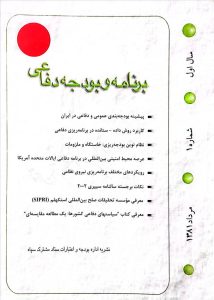 برنامه و بودجه دفاعی
سال اول
شماره ۱
مرداد ۱۳۸۱
پیشینه بودجه‌بندی عمومی و دفاعی در ایران
کاربرد روش داده - ستانده در برنامه‌ریزی دفاعی
نظام نوین بودجه‌ریزی: خاستگاه و ملزومات
عرصه محیط امنیتی بین‌المللی در برنامه دفاعی ایالات متحده آمریکا
رویکردهای مختلف برنامه‌ریزی نیروی نظامی
نکات برجسته سالنامه سیپری ۲۰۰۲
معرفی مؤسسه تحقیقات صلح بین‌المللی استکهلم (SIPRI)
معرفی کتاب "سیاستهای دفاعی کشورها: یک مطالعه مقایسه‌ای"
نشریه اداره بودجه و اعتبارات ستاد مشترک سپاه